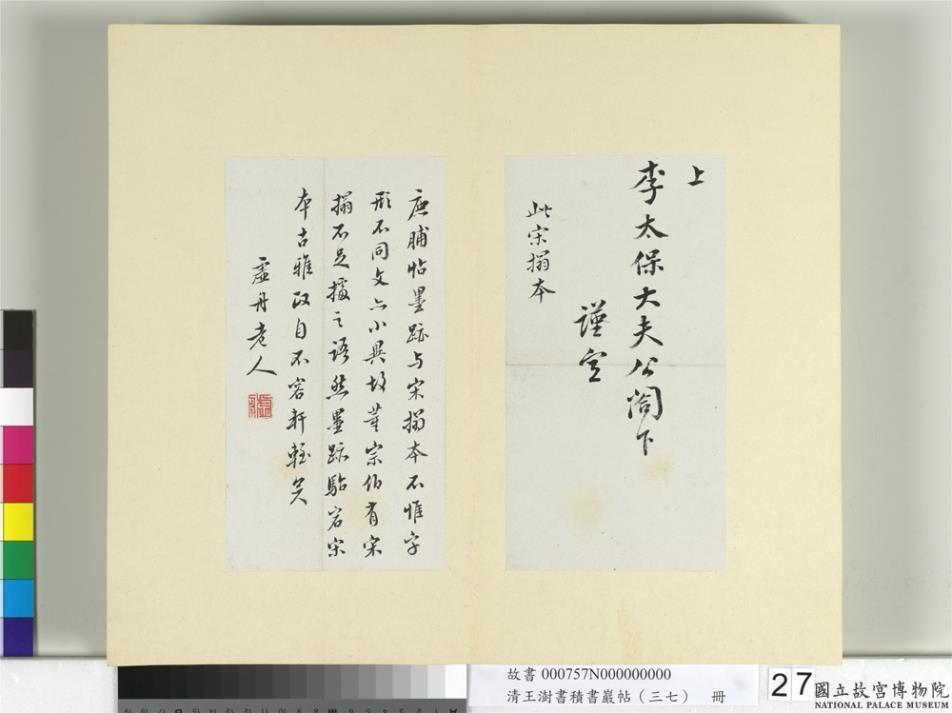 上
李太保大夫公閤下
謹空
此宋搨本
鹿脯帖墨跡与宋搨本不惟字
形不同文亦小異故董宗伯有宋
搨不足據之語然墨跡駘宕宋
本古雅政自不容軒輊矣
虛舟老人
故書 000757N000000000
清王澍書積書巖帖（三七） 冊
27
國立故宮博物院
NATIONAL PALACE MUSEUM